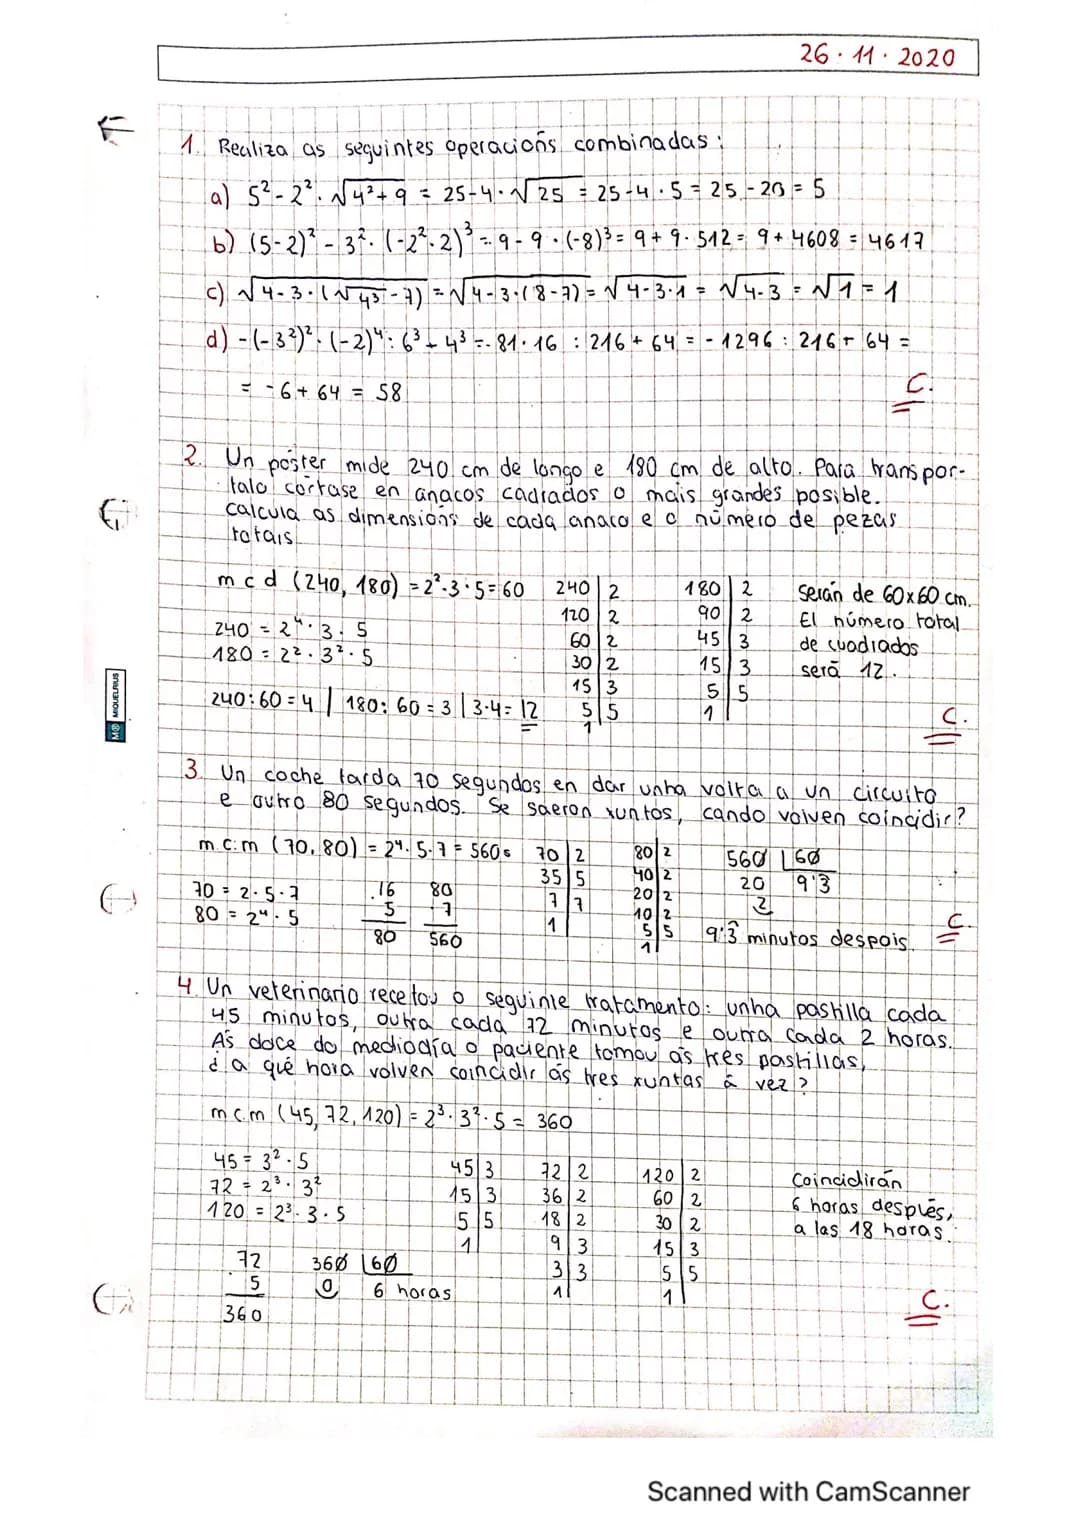 26·11·2020
1. Realiza as seguintes operacións combinadas:
a) 5² - 2² · √4²+9 = 25-4·√25 = 25-4·5 = 25-20 = 5
b) (5-2)² - 3² · (-2²·2)³ = 9-9·(-8)³ = 9+9·512 = 9+4608 = 4617
c) √4-3·(√4³-7) = √4-3·(8-7) = √4-3·1 = √4-3 = √1 = 1
d) -(-3²)² · (-2)⁴ : 6³ + 4³ = -81·16 : 216 + 64 = -1296 : 216 + 64 =
= -6 + 64 = 58
C.
2. Un póster mide 240 cm de longo e 180 cm de alto. Para transpor-
talo córtase en anacos cadrados o mais grandes posible.
calcula as dimensións de cada anaco e o número de pezas
totais.
mcd (240, 180) = 2²·3·5 = 60
240 = 2⁴·3·5
180 = 2²·3²·5
240:60 = 4 | 180:60 = 3 | 3·4 = 12
240 | 2
120 | 2
60 | 2
30 | 2
15 | 3
5 | 5
1
180 | 2
90 | 2
45 | 3
15 | 3
5 | 5
1
Serán de 60x60 cm.
El número total
de cuadrados
será 12.
C.
MIQUELRIUS
3. Un coche tarda 70 segundos en dar unha volta a un circuito
e outro 80 segundos. Se saeron xuntos, cando volven coincidir?
m.c.m (70, 80) = 2⁴·5·7 = 560s
70 = 2·5·7
80 = 2⁴·5
16
5
80
80
·7
560
70 | 2
35 | 5
7 | 7
1
80 | 2
40 | 2
20 | 2
10 | 2
5 | 5
1
560 | 60
20 9'3
2
9'3 minutos despois.
C.
4. Un veterinario recetou o seguinte tratamento: unha pastilla cada
45 minutos, outra cada 72 minutos e outra cada 2 horas.
Ás doce do mediodía o paciente tomou as tres pastillas,
¿a qué hora volven coincidir ás tres xuntas á vez?
m.c.m (45, 72, 120) = 2³·3²·5 = 360
45 = 3²·5
72 = 2³·3²
120 = 2³·3·5
72
·5
360
360 | 60
0 6 horas
45 | 3
15 | 3
5 | 5
1
72 | 2
36 | 2
18 | 2
9 | 3
3 | 3
1
120 | 2
60 | 2
30 | 2
15 | 3
5 | 5
1
Coincidirán
6 horas después,
a las 18 horas.
C.
Scanned with CamScanner